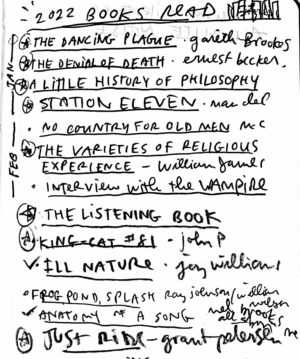 2022 BOOKS READ
THE DANCING PLAGUE · gareth Brookes
JAN
THE DENIAL OF DEATH · ernest becker.
A LITTLE HISTORY OF PHILOSOPHY
STATION ELEVEN · man del
FEB
· NO COUNTRY FOR OLD MEN mc c
THE VARIETIES OF RELIGIOUS
EXPERIENCE - William James
· Interview with the VAMPIRE
THE LISTENING BOOK
KING-CAT #81 · john P
✓ ILL NATURE · joy williams
· FROG POND SPLASH Ray johnson/william
✓ ANATOMY OF A SONG
JUST RIDE - grant petersen